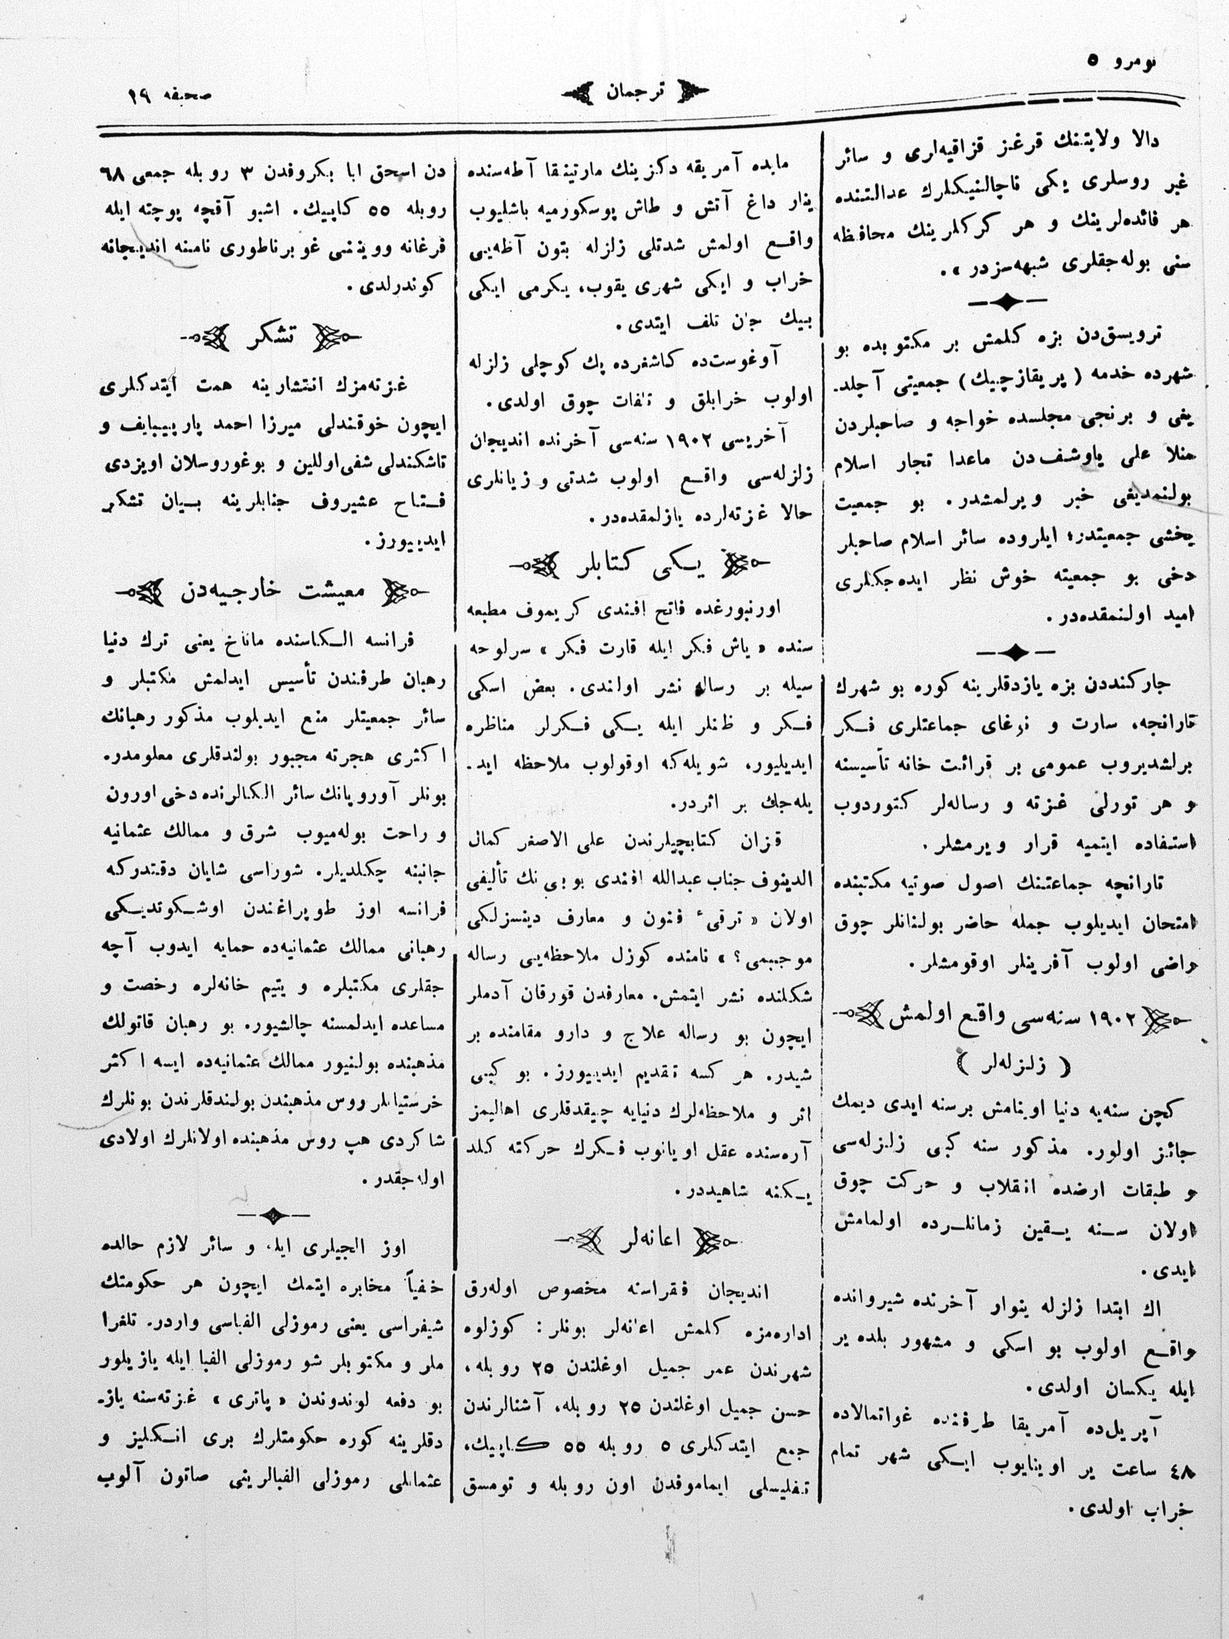 نومرو ٥
ترجمان
صحیفه ١٩
دالا ولایتنك قرغز قزاقیه‌لری و سائر
غیر روسلری یكی ناچالنیكلرك عدالتنده
هر فائده‌لرینك و هر كركلرینك محافظه
سنی بوله‌جقلری شبهه‌سزدر».
ترویسق‌دن بزه كلمش بر مكتوبده بو
شهرده خدمه (پریقازچیك) جمعیتی آچلد‌
یغی و برنجی مجلسده خواجه و صاحبلردن
منلا علی یاوشف‌دن ماعدا تجار اسلام
بولنمدیغی خبر ویرلمشدر. بو جمعیت
یخشی جمعیتدر؛ ایلروده سائر اسلام صاحبلر
دخی بو جمعیته خوش نظر ایده‌جكلری
امید اولنمقده‌در.
جاركنددن بزه یازدقلرینه كوره بو شهرك
تارانچه، سارت و نوغای جماعتلری فكر
برلشدیروب عمومی بر قرائت خانه تأسیسنه
و هر تورلی غزته و رساله‌لر كتوردوب
استفاده ایتمیه قرار ویرمشلر.
تارانچه جماعتنك اصول صوتیه مكتبنده
امتحان ایدیلوب جمله حاضر بولنانلر چوق
راضی اولوب آفرینلر اوقومشلر.
١٩٠٢ سنه‌سی واقع اولمش
(زلزله‌لر)
كچن سنه‌یه دنیا اوینامش برسنه ایدی دیمك
جائز اولور. مذكور سنه كبی زلزله‌سی
و طبقات ارضده انقلاب و حركت چوق
اولان سنه یقین زمانلرده اولمامش
ایدی.
اك ابتدا زلزله ینوار آخرنده شیروانده
واقع اولوب بو اسكی و مشهور بلده یر
ایله یكسان اولدی.
آپریل‌ده آمریقا طرفنده غواتمالاده
٤٨ ساعت یر اوینایوب ایكی شهر تمام
خراب اولدی.
مایده آمریقه دكزینك مارتینقا آطه‌سنده
ینار داغ آتش و طاش پوسكورمیه باشلیوب
واقع اولمش شدتلی زلزله بتون آطه‌یی
خراب و ایكی شهری یقوب، یكرمی ایكی
بیك جان تلف ایتدی.
آوغوست‌ده كاشغرده پك كوچلی زلزله
اولوب خرابلق و تلفات چوق اولدی.
آخریسی ١٩٠٢ سنه‌سی آخرنده اندیجان
زلزله‌سی واقع اولوب شدتی و زیانلری
حالا غزته‌لرده یازلمقده‌در.
یكی كتابلر
اورنبورغده فاتح افندی كریموف مطبعه
سنده «یاش فكر ایله قارت فكر» سرلوحه
سیله بر رساله نشر اولندی. بعض اسكی
فكر و ظنلر ایله یكی فكرلر مناظره
ایدیلیور، شویله‌كه اوقولوب ملاحظه اید‌
یله‌جك بر اثردر.
قزان كتابچیلرندن علی الاصغر كمال
الدینوف جناب عبدالله افندی بوبی نك تألیفی
اولان «ترقیٔ فنون و معارف دینسزلكی
موجبمی؟» نامنده كوزل ملاحظه‌یی رساله
شكلنده نشر ایتمش. معارفدن قورقان آدملر
ایچون بو رساله علاج و دارو مقامنده بر
شیدر. هر كسه تقدیم ایدییورز. بو كبی
اثر و ملاحظه‌لرك دنیایه چیقدقلری اهالیمز
آره‌سنده عقل اویانوب فكرك حركته كلد
یكنه شاهیددر.
اعانه‌لر
اندیجان فقراسنه مخصوص اوله‌رق
اداره‌مزه كلمش اعانه‌لر بونلر: كوزلوه
شهرندن عمر جمیل اوغلندن ٢٥ روبله،
حسن جمیل اوغلندن ٢٥ روبله، آشنالرندن
جمع ایتدكلری ٥ روبله ٥٥ كاپیك،
تفلیسلی ایماموفدن اون روبله و تومسق
دن اسحق ابا بكروفدن ٣ روبله جمعی ٦٨
روبله ٥٥ كاپیك. اشبو آقچه پوچته ایله
فرغانه ووینی غوبرناطوری نامنه اندیجانه
كوندرلدی.
تشكر
غزته‌مزك انتشارینه همت ایتدكلری
ایچون خوقندلی میرزا احمد پارپیبایف و
تاشكندلی شفی‌اوللین و بوغوروسلان اویزدی
فتاح عشیروف جنابلرینه بیان تشكر
ایدییورز.
معیشت خارجیه‌دن
فرانسه الكاسنده ماناخ یعنی ترك دنیا
رهبان طرفندن تأسیس ایدلمش مكتبلر و
سائر جمعیتلر منع ایدیلوب مذكور رهبانك
اكثری هجرته مجبور بولندقلری معلومدر.
بونلر آوروپانك سائر الكالرنده دخی اورون
و راحت بوله‌میوب شرق و ممالك عثمانیه
جانبنه چكلدیلر. شوراسی شایان دقتدركه
فرانسه اوز طوپراغندن اوشكوندیكی
رهبانی ممالك عثمانیه‌ده حمایه ایدوب آچه
جقلری مكتبلره و یتیم خانه‌لره رخصت و
مساعده ایدلمسنه چالشیور. بو رهبان قاتولك
مذهبنده بولنیور ممالك عثمانیه‌ده ایسه اكثر
خرستیانلر روس مذهبندن بولندقلرندن بونلرك
شاكردی هپ روس مذهبنده اولانلرك اولادی
اوله‌جقدر.
اوز الچیلری ایله و سائر لازم حالده
خفیاً مخابره ایتمك ایچون هر حكومتك
شیفراسی یعنی رموزلی الفباسی واردر. تلغرا
ملر و مكتوبلر شو رموزلی الفبا ایله یازیلور
بو دفعه لوندوندن «پاتری» غزته‌سنه یاز‌
دقلرینه كوره حكومتلرك بری انكلیز و
عثمانلی رموزلی الفبالرینی صاتون آلوب